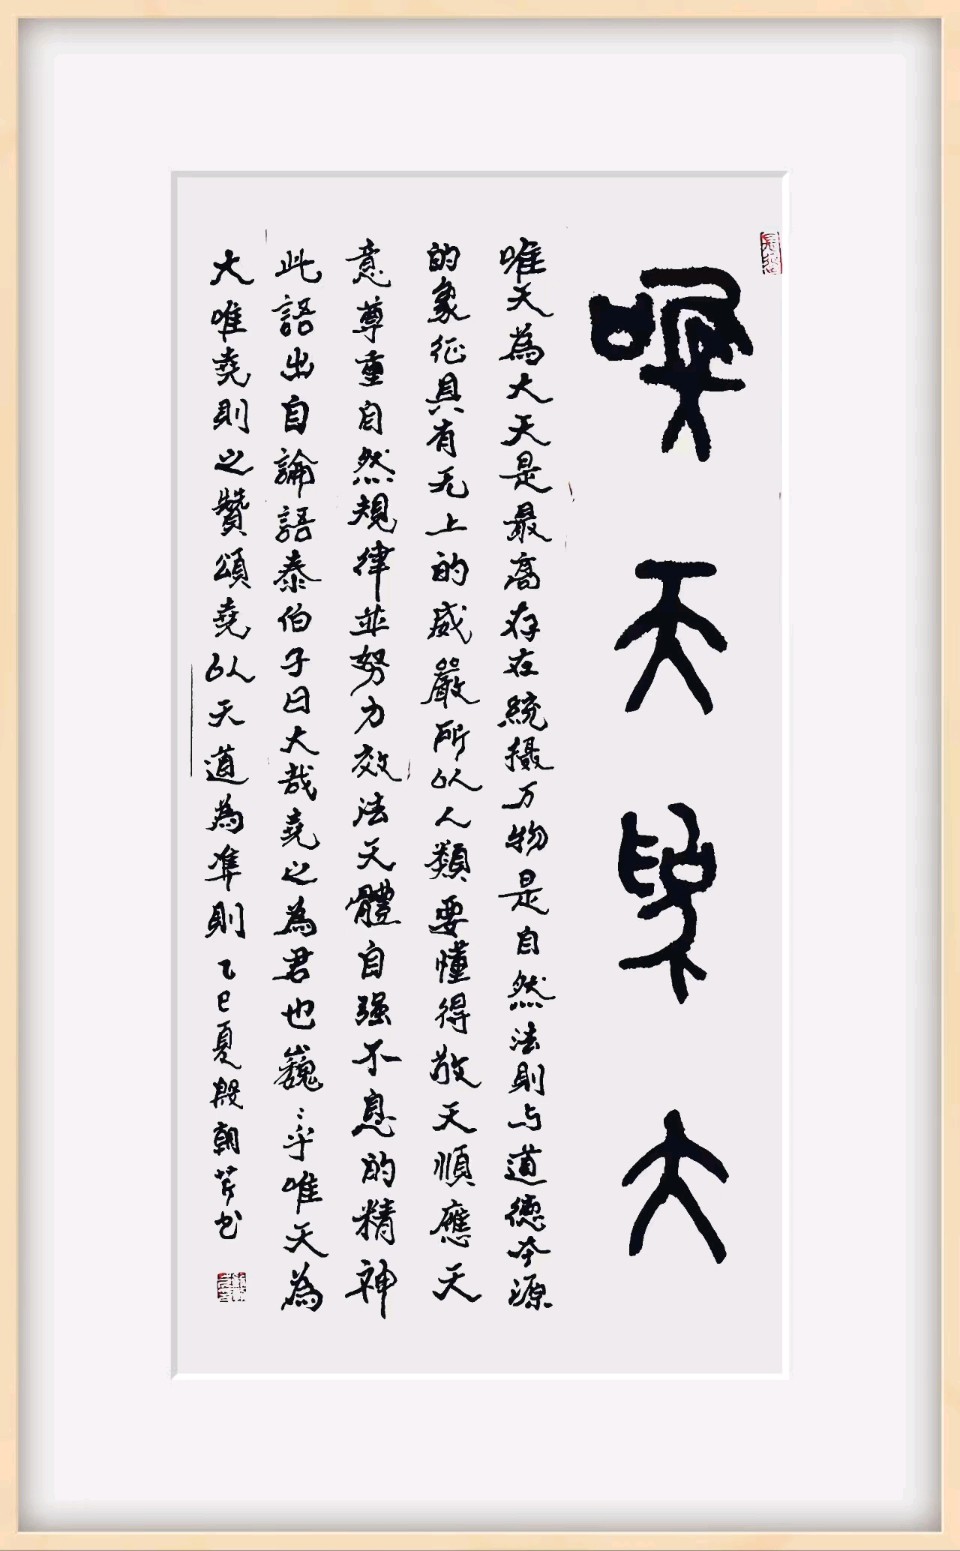 唯天為大
唯天為大天是最高存在統摄万物是自然法則与道德夲源
的象征具有无上的威嚴所以人類要懂得敬天順應天
意尊重自然規律並努力效法天體自强不息的精神
此語出自論語泰伯子曰大哉堯之為君也巍〻乎唯天為
大唯堯則之贊頌堯以天道為準則乙巳夏殷朝芹书